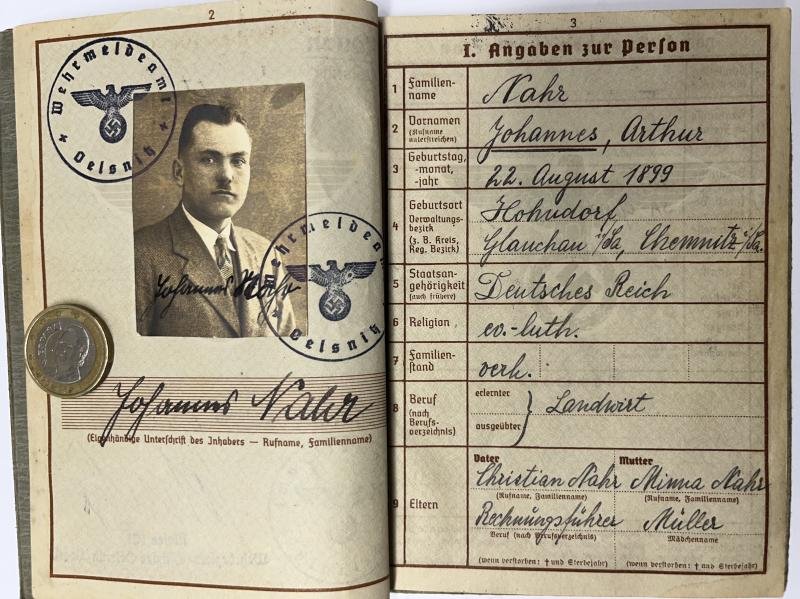 2
Wehrmeldeamt
Oelsnitz
Johannes Nahr
Wehrmeldeamt
Oelsnitz
Johannes Nahr
(Eigenhändige Unterschrift des Inhabers — Rufname, Familienname)
3
I. Angaben zur Person
1 Familien-
name
Nahr
2 Vornamen
(Rufname
unterstreichen)
Johannes, Arthur
3 Geburtstag,
-monat,
-jahr
22. August 1899
4 Geburtsort
Verwaltungs-
bezirk
(z. B. Kreis,
Reg. Bezirk)
Hohndorf
Glauchau i/Sa, Chemnitz i/Sa.
5 Staatsan-
gehörigkeit
(auch frühere)
Deutsches Reich
6 Religion
ev.-luth.
7 Familien-
stand
verh.
8 Beruf
(nach
Berufs-
verzeichnis)
erlernter
ausgeübter
Landwirt
9 Eltern
Vater Mutter
Christian Nahr Minna Nahr
(Rufname, Familienname) (Rufname, Familienname)
Rechnungsführer Müller
Beruf (nach Berufsverzeichnis) Mädchenname
(wenn verstorben: † und Sterbejahr) (wenn verstorben: † und Sterbejahr)